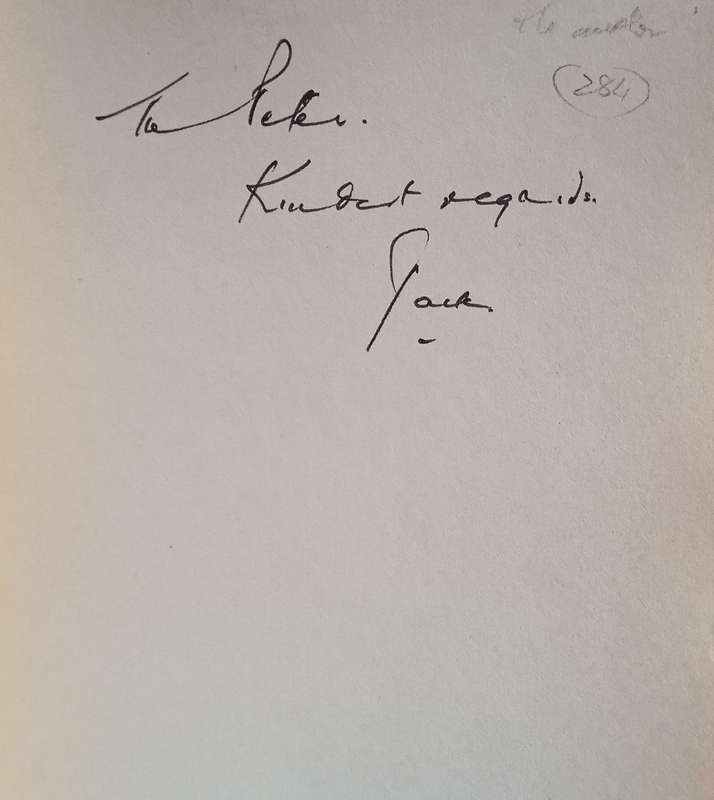 (284)
To Peter.
Kindest regards.
Jack.